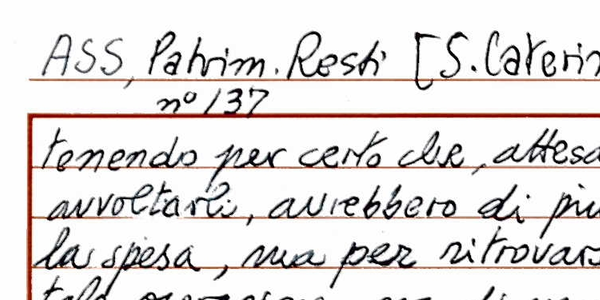 ASS, Patrim. Resti [S. Caterin
nº 137
tenendo per certo che, attesa
avvoltarli, avrebbero di più
la spesa, ma per ritrovars